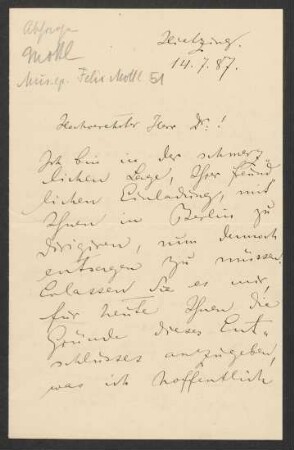 Absage
Mottl
Felix Mottl 51
Hietzing.
14.7.87.
Hochverehrter Herr Dr.!
Ich bin in der schmerz-
lichen Lage, Ihrer freund
lichen Einladung, mit
Ihnen in Berlin zu
dirigiren, nun dennoch
entsagen zu müssen.
Erlassen Sie es mir,
für heute Ihnen die
Gründe dieses Ent-
schlusses anzugeben,
was ich hoffentlich